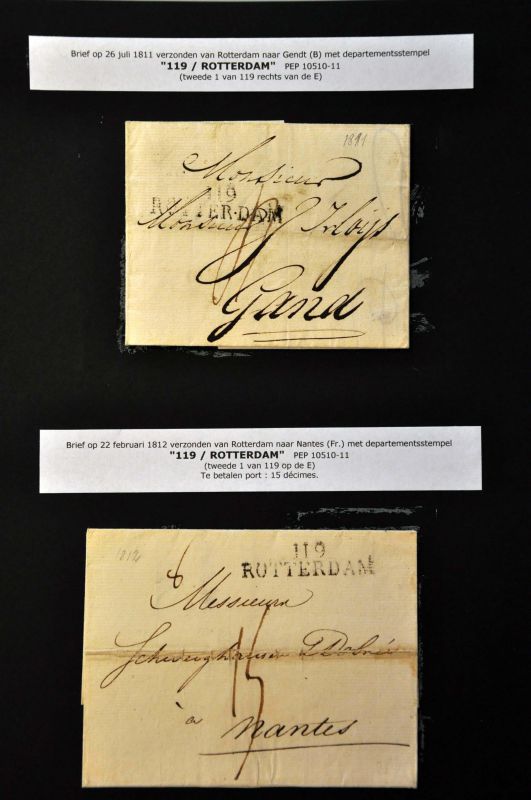 Brief op 26 juli 1811 verzonden van Rotterdam naar Gendt (B) met departementsstempel
"119 / ROTTERDAM" PEP 10510-11
(tweede 1 van 119 rechts van de E)
1811
Monsieur
119
ROTTERDAM
Monsieur
Gand
Brief op 22 februari 1812 verzonden van Rotterdam naar Nantes (Fr.) met departementsstempel
"119 / ROTTERDAM" PEP 10510-11
(tweede 1 van 119 op de E)
Te betalen port : 15 décimes.
1812
119
ROTTERDAM
Messieurs
15
à
Nantes